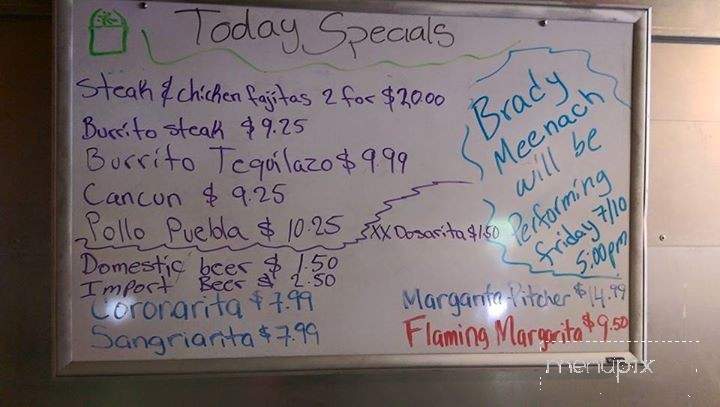 Today Specials
Steak & chicken fajitas 2 for $20.00
Burrito steak $9.25
Burrito Tequilazo $9.99
Cancun $9.25
Pollo Puebla $10.25
XX Dosarita $1.50
Domestic beer $1.50
Import Beer $2.50
Coronarita $7.99
Sangriarita $7.99
Brady
Meenach
will be
Performing
friday 7/10
5:00pm
Margarita Pitcher $14.99
Flaming Margarita $9.50
menupix